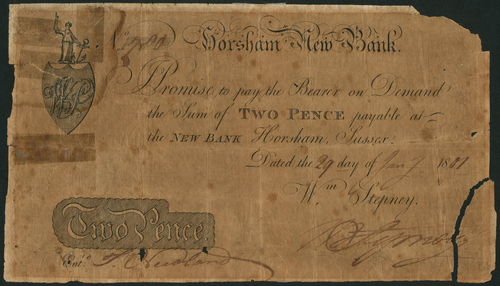 Horsham New Bank.
I Promise to pay the Bearer on Demand
the Sum of TWO PENCE payable at
the NEW BANK Horsham, Sussex.
Dated the 29 day of 1801
Wm Stepney
Two Pence
Entd